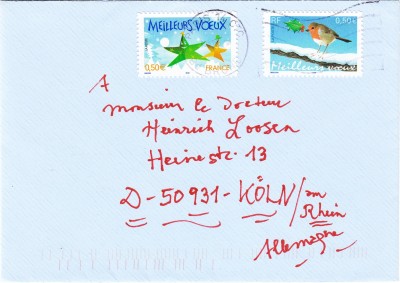 MEILLEURS VOEUX
0,50€
FRANCE
RF
0,50€
Meilleurs vœux
A
Monsieur le Docteur
Heinrich Loosen
Heinestr. 13
D-50931-KÖLN/am
Rhein
Allemagne